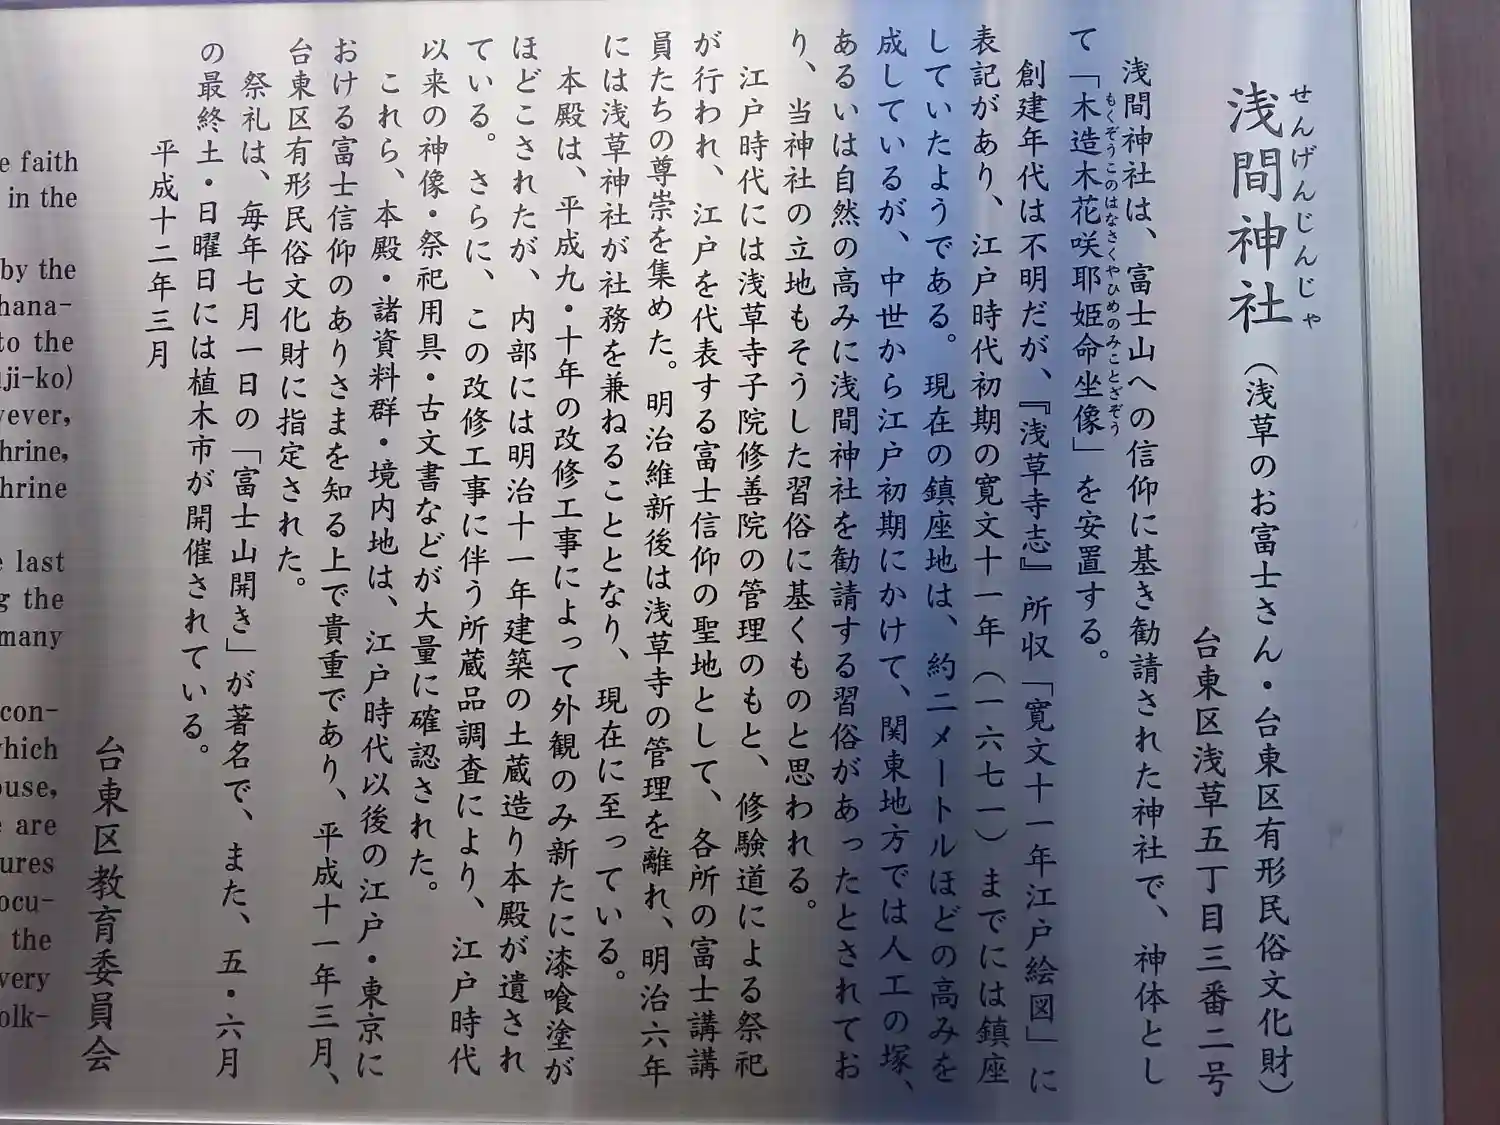 せんげんじんじゃ
浅間神社（浅草のお富士さん・台東区有形民俗文化財）
台東区浅草五丁目三番二号
浅間神社は、富士山への信仰に基き勧請された神社で、神体とし
て「木造木花咲耶姫命坐像」を安置する。
もくぞうこのはなさくやひめのみことざぞう
創建年代は不明だが、『浅草寺志』所収「寛文十一年江戸絵図」に
表記があり、江戸時代初期の寛文十一年（一六七一）までには鎮座
していたようである。現在の鎮座地は、約二メートルほどの高みを
成しているが、中世から江戸初期にかけて、関東地方では人工の塚、
あるいは自然の高みに浅間神社を勧請する習俗があったとされてお
り、当神社の立地もそうした習俗に基くものと思われる。
江戸時代には浅草寺子院修善院の管理のもと、修験道による祭祀
が行われ、江戸を代表する富士信仰の聖地として、各所の富士講講
員たちの尊崇を集めた。明治維新後は浅草寺の管理を離れ、明治六年
には浅草神社が社務を兼ねることとなり、現在に至っている。
本殿は、平成九・十年の改修工事によって外観のみ新たに漆喰塗が
ほどこされたが、内部には明治十一年建築の土蔵造り本殿が遺され
ている。さらに、この改修工事に伴う所蔵品調査により、江戸時代
以来の神像・祭祀用具・古文書などが大量に確認された。
これら、本殿・諸資料群・境内地は、江戸時代以後の江戸・東京に
おける富士信仰のありさまを知る上で貴重であり、平成十一年三月、
台東区有形民俗文化財に指定された。
祭礼は、毎年七月一日の「富士山開き」が著名で、また、五・六月
の最終土・日曜日には植木市が開催されている。
平成十二年三月
台東区教育委員会
e faith
in the
by the
hana-
to the
uji-ko)
vever,
hrine,
hrine
e last
g the
many
con-
vhich
ouse,
e are
ures
ocu-
the
very
olk-